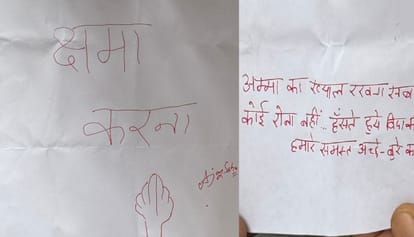 क्षमा
करना
अम्मा का ख्याल रखना सब
कोई रोना नहीं.. हँसते हुये विदा
हमारे समस्त अच्छे-बुरे